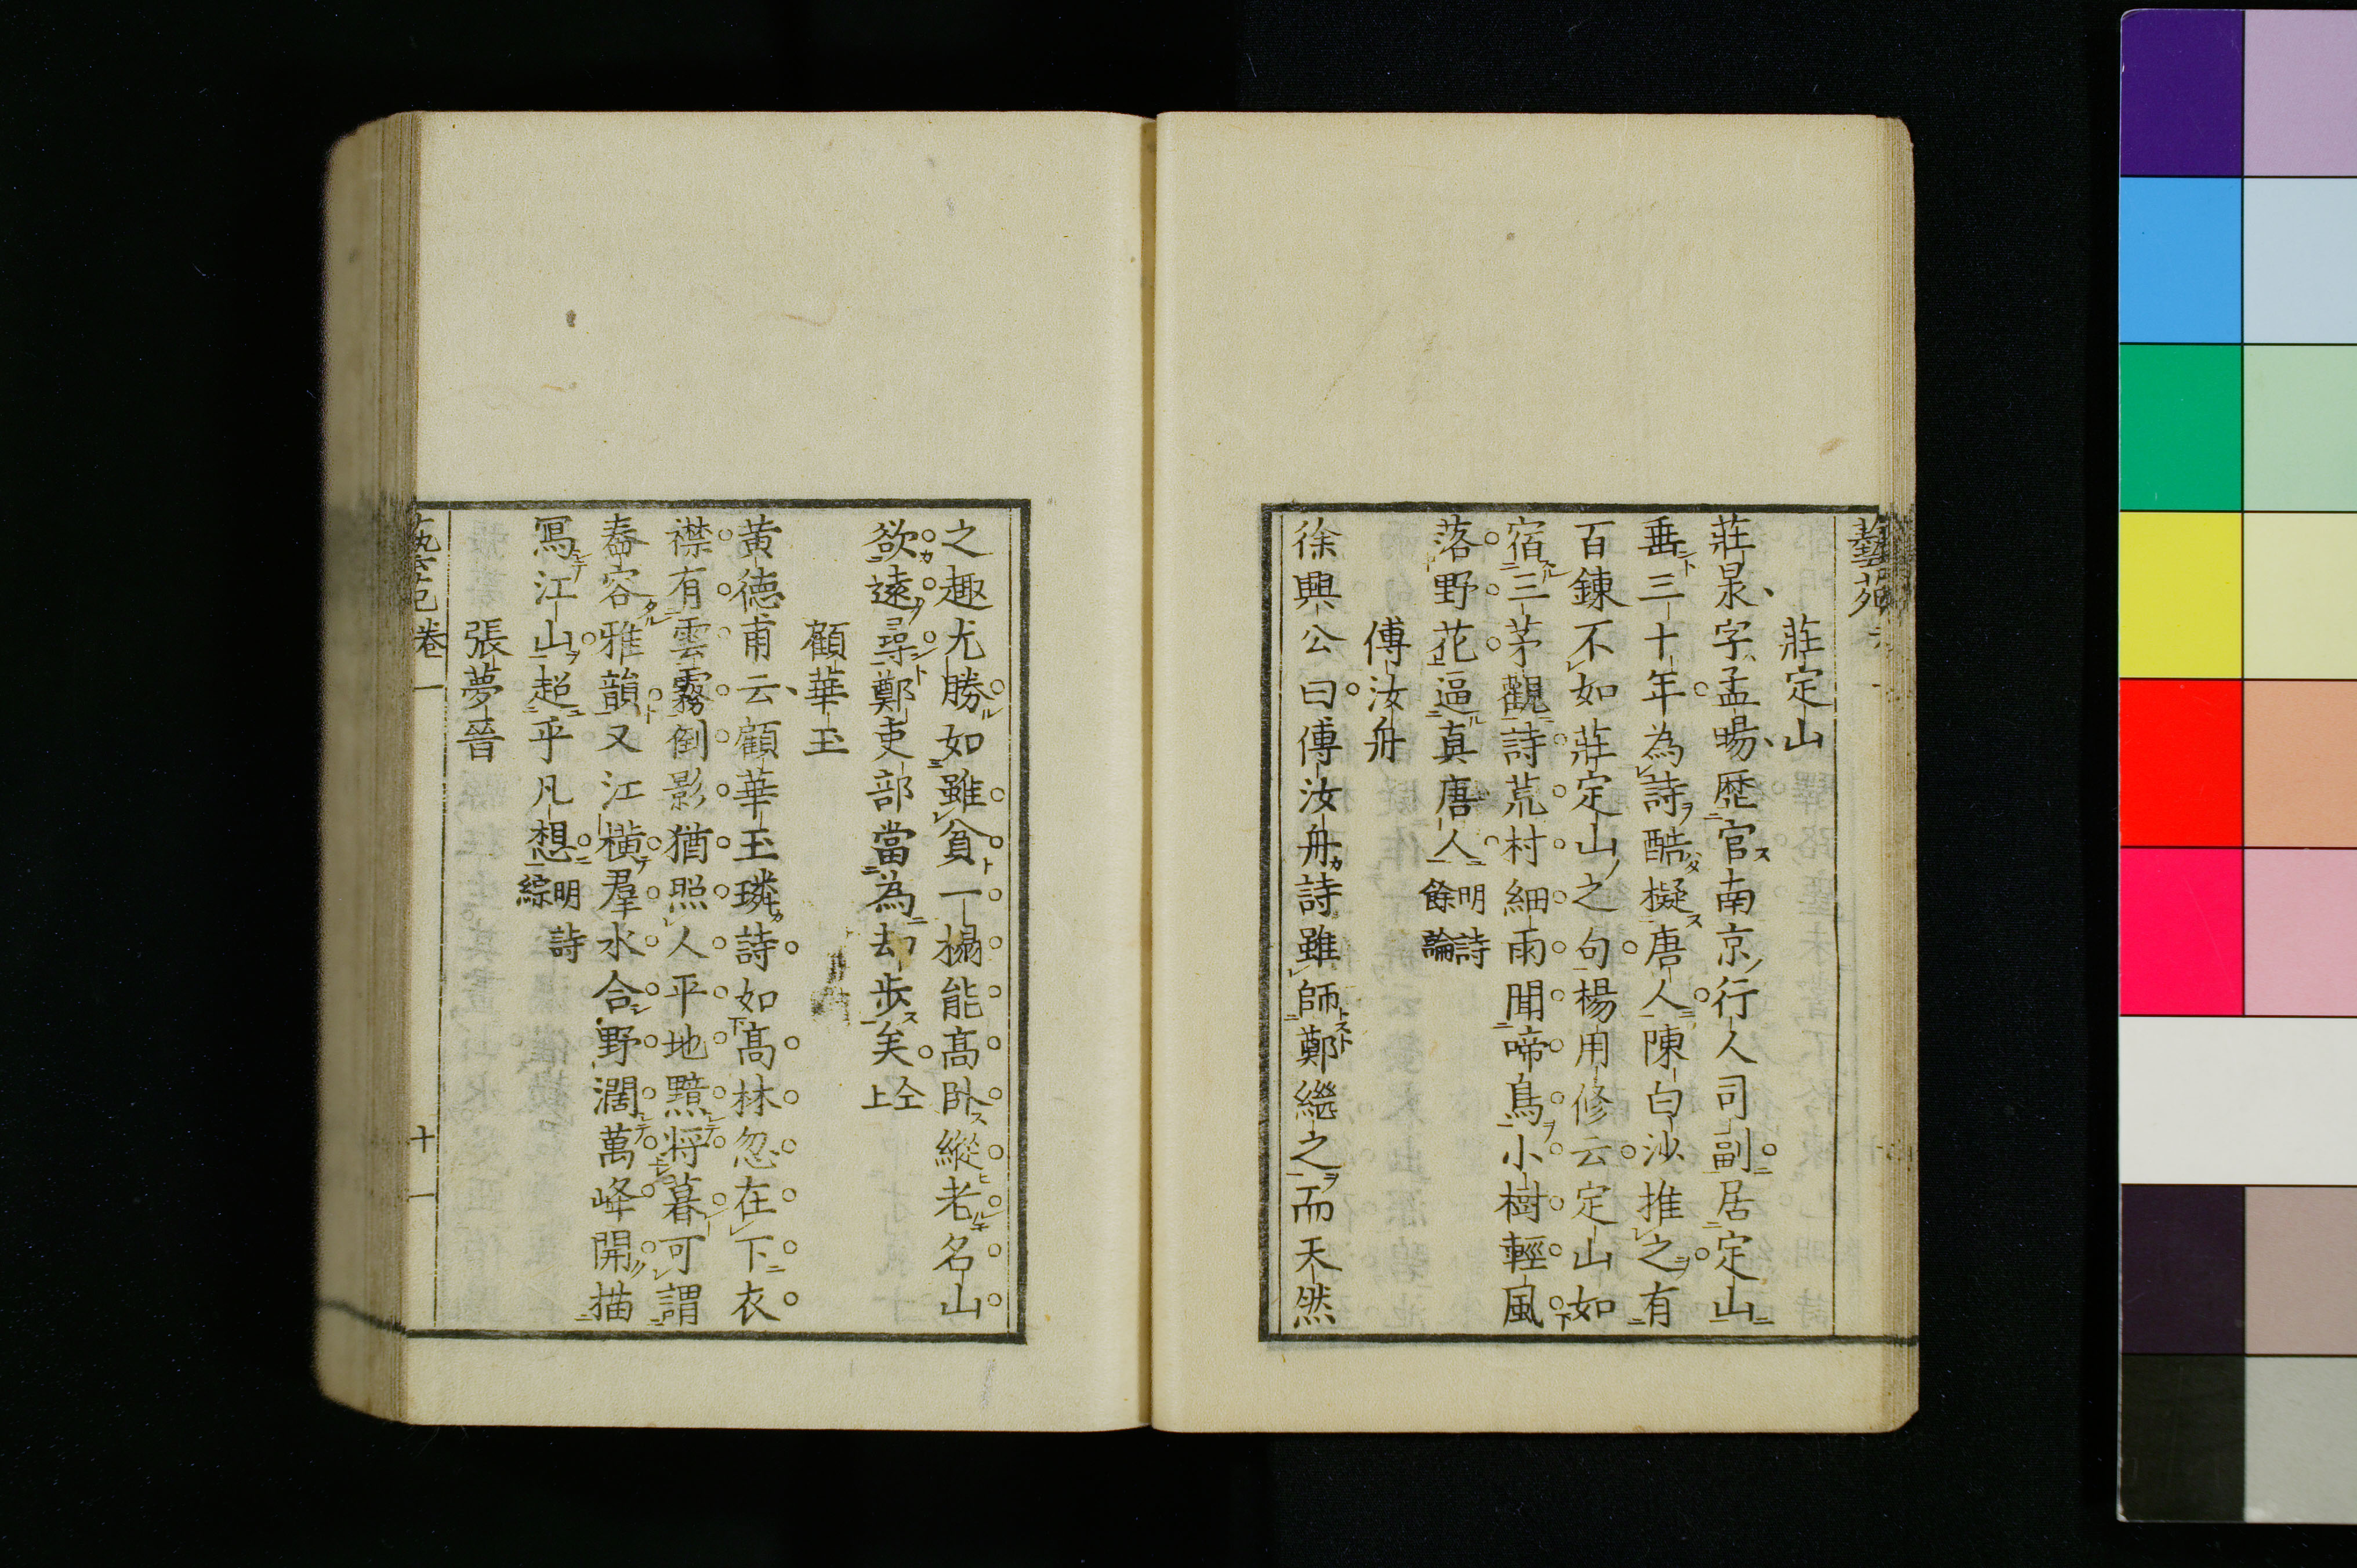 藝苑
莊定山
莊㫤字孟暘歷官南京行人司副居定山
垂三十年為詩酷擬唐人陳白沙推之有
百鍊不如莊定山之句楊用修云定山如
宿三茅觀詩荒村細雨聞啼鳥小樹輕風
落野花逼真唐人明詩餘論
傅汝舟
徐興公曰傅汝舟詩雖師鄭繼之而天然
之趣尤勝如雖貧一榻能高卧縱老名山
欲遠尋鄭吏部當為却步矣仝上
顧華玉
黄德甫云顧華玉璘詩如高林忽在下衣
襟有雲霧倒影猶照人平地黯將暮可謂
舂容雅韻又江橫羣水合野濶萬峰開描
寫江山超乎凡想明詩綜
張夢晉
藝苑 卷一 十一